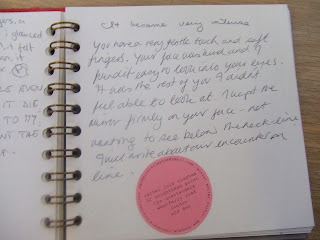 It became very intense
You have a very gentle touch and soft
fingers. Your face was kind and I
found it easy to look into your eyes.
It was the rest of you I didn't
feel able to look at. I kept the
mirror firmly on your face - not
wanting to see below the neck line
I will write about our encounter on
line.
I glanced
I felt
EVEN
IT DIE
TO MY
THE
london